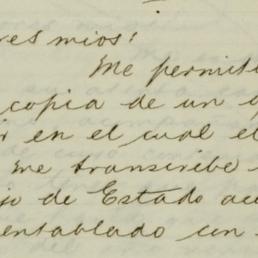 res mios:
Me permit
copia de un
r en el cual el
me transcribe
jo de Estado ac
entablado con